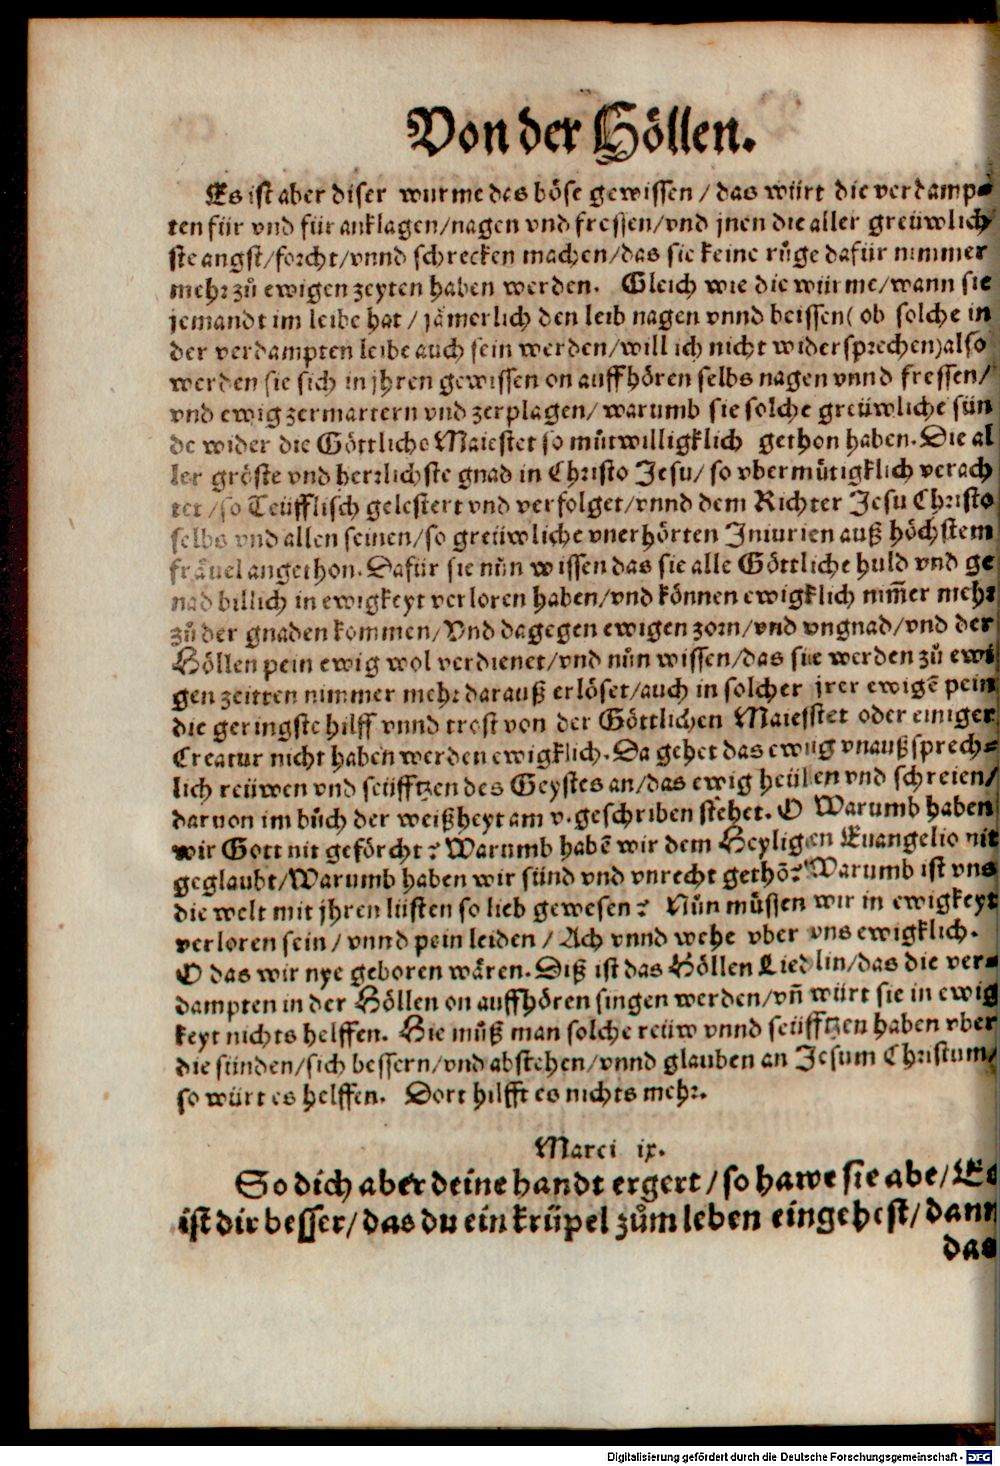 Von der Höllen.
Es ist aber diser wurme das böse gewissen / das würt die verdamp⸗
ten für vnd für anklagen/nagen vnd fressen/vnd jnen die aller greüwlich
ste angst/forcht/vnnd schrecken machen/das sie keine růge dafür nimmer
mehr zů ewigen zeyten haben werden. Gleich wie die würme/wann sie
jemandt im leibe hat / jämerlich den leib nagen vnnd beissen( ob solche in
der verdampten leibe auch sein werden/will ich nicht widersprechen)also
werden sie sich in jhren gewissen on auffhören selbs nagen vnnd fressen/
vnd ewig zermartern vnd zerplagen/ warumb sie solche greüwliche sün
de wider die Göttliche Maiestet so můtwilligklich gethon haben. Die al
ler gröste vnd herrlichste gnad in Christo Jesu/ so vbermůtigklich verach
tet /so Teüfflisch gelestert vnd verfolget/vnnd dem Richter Jesu Christo
selbs vnd allen seinen/so greüwliche vnerhörten Iniurien auß höchstem
fräuel angethon. Dafür sie nůn wissen das sie alle Göttliche huld vnd ge
nad billich in ewigkeyt verloren haben/vnd können ewigklich nim̄er mehr
zů der gnaden kommen/ Vnd dagegen ewigen zorn/vnd vngnad/vnd der
Höllen pein ewig wol verdienet/vnd nůn wissen/das sie werden zů ewi
gen zeitten nimmer mehr darauß erlöset/auch in solcher jrer ewigē pein
die geringste hilff vnnd trost von der Göttlichen Maiesstet oder einiger
Creatur nicht haben werden ewigklich. Da gehet das ewig vnaußsprech⸗
lich reüwen vnd seüfftzen des Geystes an/das ewig heülen vnd schreien/
daruon im bůch der weißheyt am v. geschriben stehet. O Warumb haben
wir Gott nit geförcht? Warumb habē wir dem Heyligen Euangelio nit
geglaubt/Warumb haben wir sünd vnd vnrecht gethō? Warumb ist vns
die welt mit jhren lüsten so lieb gewesen? Nůn můssen wir in ewigkeyt
verloren sein / vnnd pein leiden / Ach vnnd wehe vber vns ewigklich.
O das wir nye geboren wären. Diß ist das Höllen Liedlin/das die ver⸗
dampten in der Höllen on auffhören singen werden/vn̄ würt sie in ewig
keyt nichts helffen. Hie můß man solche reüw vnnd seüfftzen haben vber
die sünden/sich bessern/vnd abstehen/vnnd glauben an Jesum Christum/
so würt es helffen. Dort hilfft es nichts mehr.
Marci ix.
So dich aber deine handt ergert / so hawe sie abe/ Es
ist dir besser/ das du ein krüpel zům leben eingehest/ dann
das
Digitalisierung gefördert durch die Deutsche Forschungsgemeinschaft - DFG